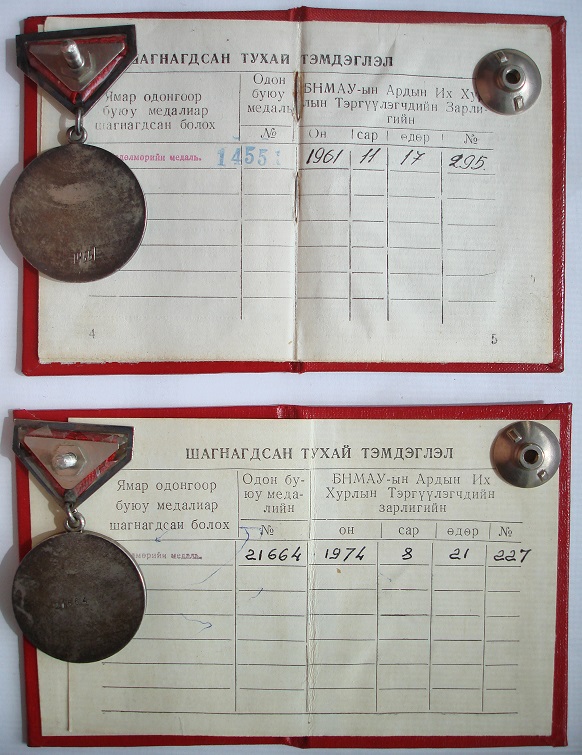 ШАГНАГДСАН ТУХАЙ ТЭМДЭГЛЭЛ
Ямар одонгоор
буюу медалиар
шагнагдсан болох
Одон
буюу
медаль
№
БНМАУ-ын Ардын Их Хур
лын Тэргүүлэгчдийн Зарли-
гийн
Он сар өдөр №
медаль. 1961 11 17 295.
4
5
ШАГНАГДСАН ТУХАЙ ТЭМДЭГЛЭЛ
Ямар одонгоор
буюу медалиар
шагнагдсан болох
Одон бу-
юу меда-
лийн
№
БНМАУ-ын Ардын Их
Хурлын Тэргүүлэгчдийн
зарлигийн
он сар өдөр №
медаль. 21664 1974 8 21 227